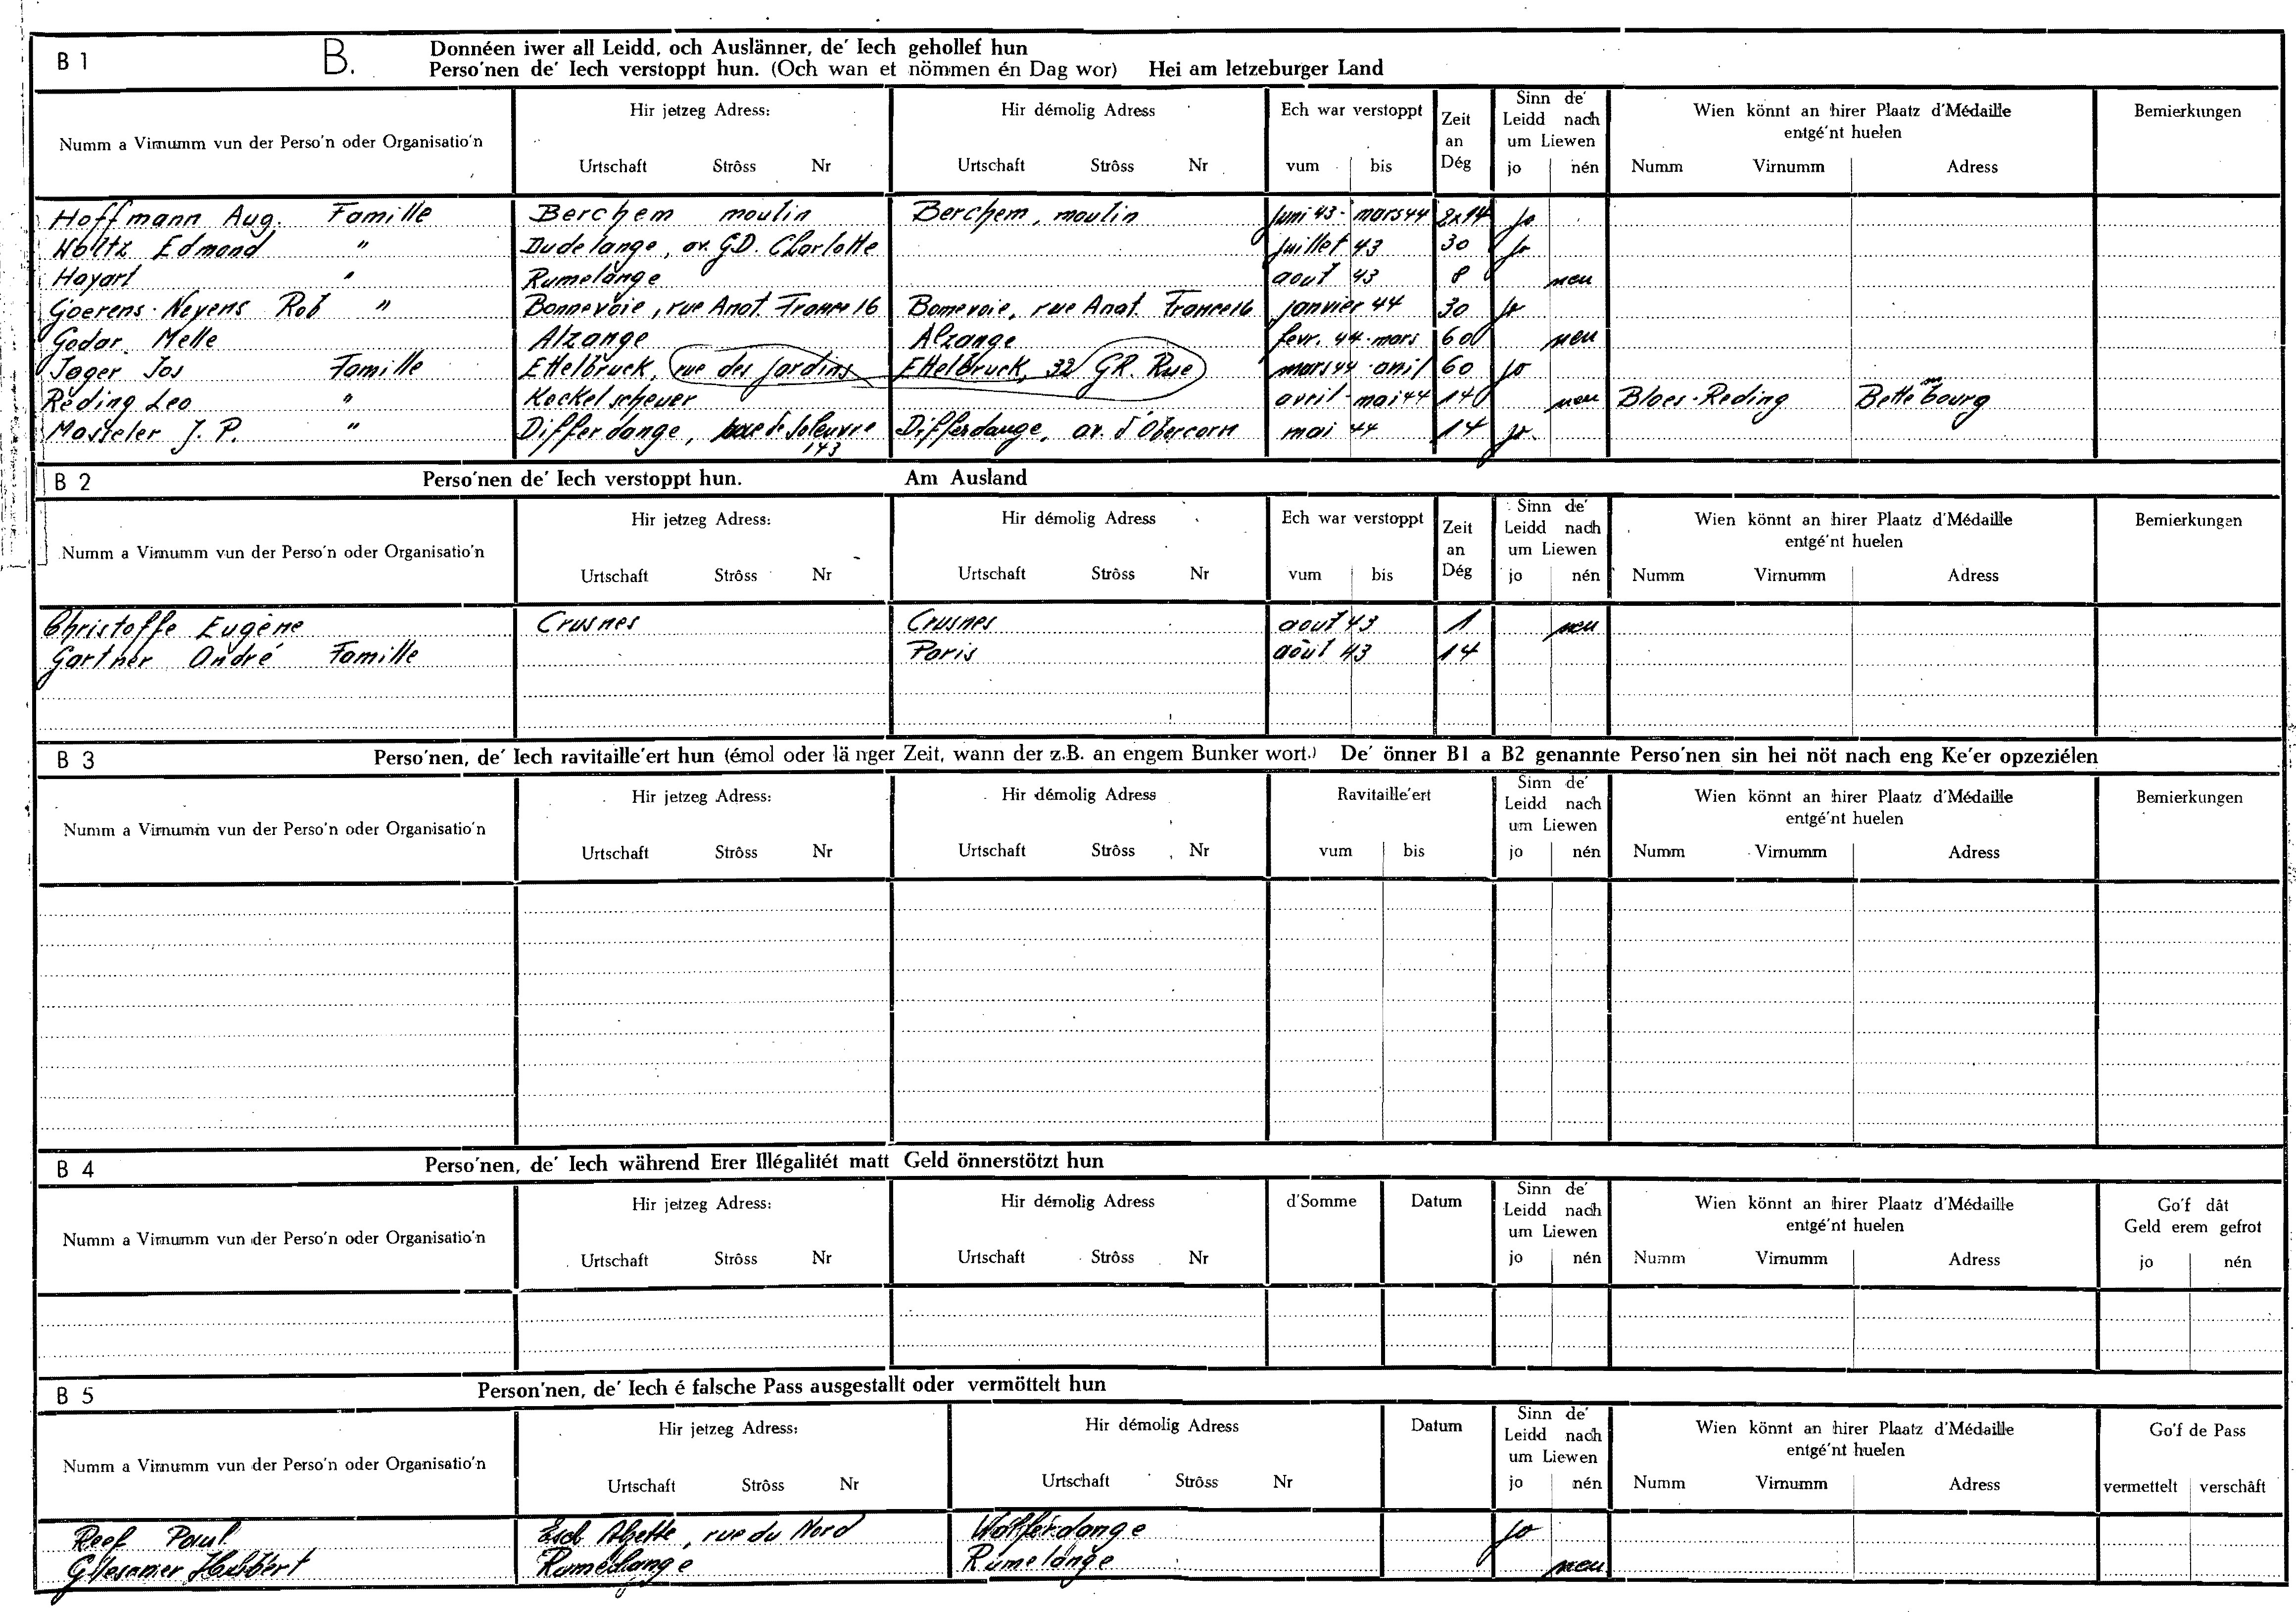 B 1 B. Donnéen iwer all Leidd, och Auslänner, de' Iech gehollef hun
Perso'nen de' Iech verstoppt hun. (Och wan et nömmen én Dag wor) Hei am letzeburger Land
Numm a Virnumm vun der Perso'n oder Organisatio'n
Hir jetzeg Adress:
Urtschaft Strôss Nr
Hir démolig Adress
Urtschaft Strôss Nr
Ech war verstoppt
vum bis
Zeit
an
Dég
Sinn de'
Leidd nach
um Liewen
jo nén
Wien könnt an hirer Plaatz d'Médaille
entgé'nt huelen
Numm Virnumm Adress
Bemierkungen
Hoffmann Aug. Famille Berchem moulin Berchem, moulin Juni 43 - mars 44 2x14 jo
Woltz Edmond " Dudelange, av. G.D. Charlotte juillet 43 30 jo
Hayart " Rumelange aout 43 8 nen
Goerens-Neyens Rob " Bonnevoie, rue Anat. France 16 Bonnevoie, rue Anat. France 16 janvier 44 30 jo
Godar Melle Alzange Alzange fevr. 44 - mars 60 nen
Jager Jos Famille Ettelbruck, rue des Jardins Ettelbruck, 32 GR. Rue mars 44 - avril 60 jo
Reding Leo " Kockelscheuer avril - mai 44 14 nen Bloes-Reding Bettembourg
Masteler J. P. " Differdange, de Soleuvre 143 Differdange, av. d'Obercorn mai 44 14 jo
B 2 Perso'nen de' Iech verstoppt hun. Am Ausland
Numm a Virnumm vun der Perso'n oder Organisatio'n
Hir jetzeg Adress:
Urtschaft Strôss Nr
Hir démolig Adress
Urtschaft Strôss Nr
Ech war verstoppt
vum bis
Zeit
an
Dég
Sinn de'
Leidd nach
um Liewen
jo nén
Wien könnt an hirer Plaatz d'Médaille
entgé'nt huelen
Numm Virnumm Adress
Bemierkungen
Christoffe Eugène Crusnes Crusnes aout 43 1 nen
Gartner André Famille Paris août 43 14
B 3 Perso'nen, de' Iech ravitaille'ert hun (émol oder länger Zeit, wann der z.B. an engem Bunker wort.) De' önner B1 a B2 genannte Perso'nen sin hei nöt nach eng Ke'er opzeziélen
Numm a Virnumm vun der Perso'n oder Organisatio'n
Hir jetzeg Adress:
Urtschaft Strôss Nr
Hir démolig Adress
Urtschaft Strôss Nr
Ravitaille'ert
vum bis
Sinn de'
Leidd nach
um Liewen
jo nén
Wien könnt an hirer Plaatz d'Médaille
entgé'nt huelen
Numm Virnumm Adress
Bemierkungen
B 4 Perso'nen, de' Iech während Erer Illégalitét matt Geld önnerstötzt hun
Numm a Virnumm vun der Perso'n oder Organisatio'n
Hir jetzeg Adress:
Urtschaft Strôss Nr
Hir démolig Adress
Urtschaft Strôss Nr
d'Somme
Datum
Sinn de'
Leidd nach
um Liewen
jo nén
Wien könnt an hirer Plaatz d'Médaille
entgé'nt huelen
Numm Virnumm Adress
Go'f dât
Geld erem gefrot
jo nén
B 5 Person'nen, de' Iech é falsche Pass ausgestallt oder vermöttelt hun
Numm a Virnumm vun der Perso'n oder Organisatio'n
Hir jetzeg Adress:
Urtschaft Strôss Nr
Hir démolig Adress
Urtschaft Strôss Nr
Datum
Sinn de'
Leidd nach
um Liewen
jo nén
Wien könnt an hirer Plaatz d'Médaille
entgé'nt huelen
Numm Virnumm Adress
Go'f de Pass
vermettelt verschâft
Reef Paul Esch Alzette, rue du Nord Walferdange jo
Glesener Hubert Rumelange Rumelange nen